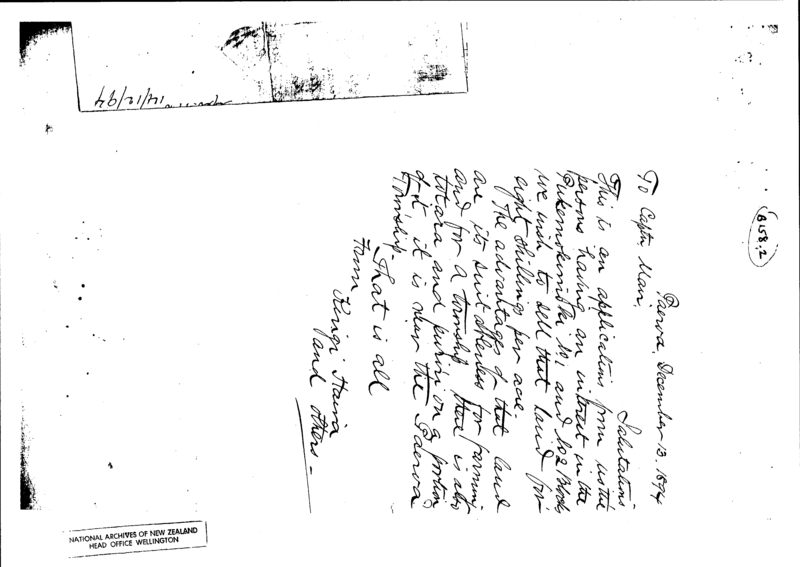 Paeroa, December 13. 1894
To Capt. Mair,
Salutations
This is an application from us the
persons having an interest in the
No 1 and No 2 Blocks
we wish to sell that land for
eight shillings per acre.
The advantages of that land
are its suitableness for farming
and for a township there is also
totara and puriri on a portion
of it it is near the Paeroa
Township.
That is all
From
Haira
and others -
14/12/94
B158.2
NATIONAL ARCHIVES OF NEW ZEALAND
HEAD OFFICE WELLINGTON